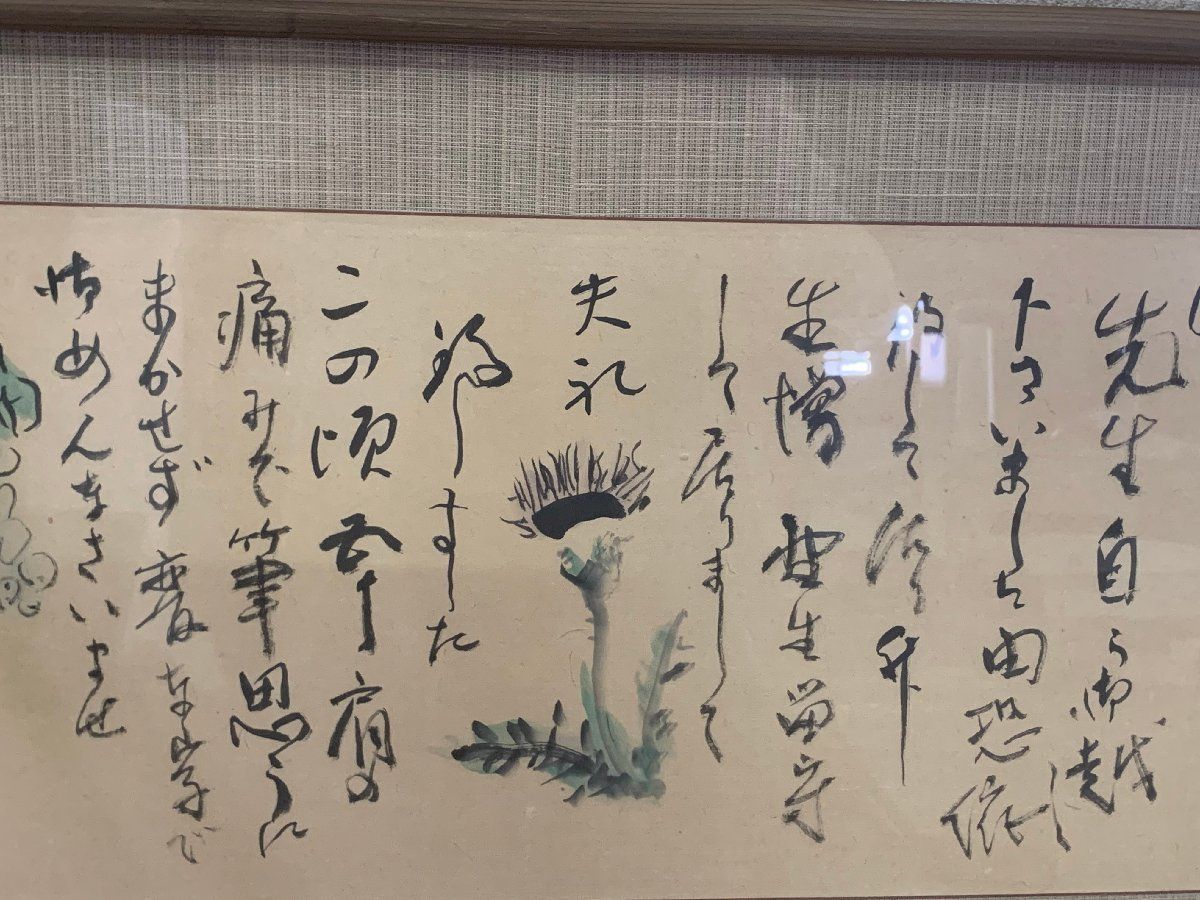 先生自ら御越
下さいました由恐
縮して
生憎野生留守
して居りまして
失礼
致しました
この頃五十肩の
痛みで筆思うに
まかせず変な字で
御めんなさいませ